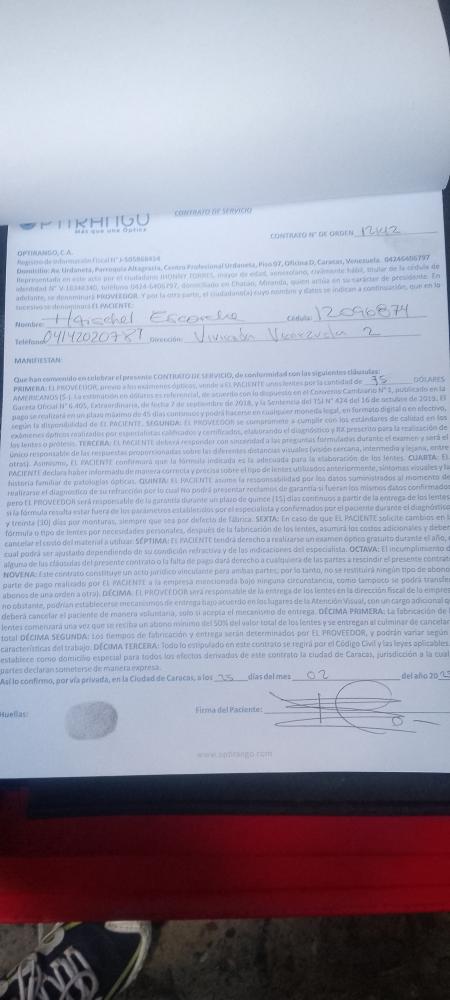 OPTIRANGO
Más que una Óptica
CONTRATO DE SERVICIO
CONTRATO N° DE ORDEN 1242
OPTIRANGO, C.A.
Registro de Información Fiscal N° J-505868454
Domicilio: Av. Urdaneta, Parroquia Altagracia, Centro Profesional Urdaneta, Piso 97, Oficina D, Caracas, Venezuela. 04246406797
Representada en este acto por el ciudadano JHONNY TORRES, mayor de edad, venezolano, civilmente hábil, titular de la cédula de
identidad N° V-18346340, teléfono 0424-6406797, domiciliado en Chacao, Miranda, quien actúa en su carácter de presidente. En
adelante, se denominará PROVEEDOR. Y por la otra parte, el ciudadano(a) cuyo nombre y datos se indican a continuación, que en lo
sucesivo se denominará EL PACIENTE:
Nombre: Cédula: 12096874
Teléfono: 04142020787 Dirección: 2
MANIFIESTAN:
Que han convenido en celebrar el presente CONTRATO DE SERVICIO, de conformidad con las siguientes cláusulas:
PRIMERA: EL PROVEEDOR, previo a los exámenes ópticos, vende a EL PACIENTE unos lentes por la cantidad de 75 DÓLARES
AMERICANOS ($ ). La estimación en dólares es referencial, de acuerdo con lo dispuesto en el Convenio Cambiario N° 1, publicado en la
Gaceta Oficial N° 6.405, Extraordinaria, de fecha 7 de septiembre de 2018, y la Sentencia del TSJ N° 424 del 16 de octubre de 2019. El
pago se realizará en un plazo máximo de 45 días continuos y podrá hacerse en cualquier moneda legal, en formato digital o en efectivo,
según la disponibilidad de EL PACIENTE. SEGUNDA: EL PROVEEDOR se compromete a cumplir con los estándares de calidad en los
exámenes ópticos realizados por especialistas calificados y certificados, elaborando el diagnóstico y RX prescrito para la realización de
los lentes o prótesis. TERCERA: EL PACIENTE deberá responder con sinceridad a las preguntas formuladas durante el examen y será el
único responsable de las respuestas proporcionadas sobre las diferentes distancias visuales (visión cercana, intermedia y lejana, entre
otras). Asimismo, EL PACIENTE confirmará que la fórmula indicada es la adecuada para la elaboración de los lentes. CUARTA: EL
PACIENTE declara haber informado de manera correcta y precisa sobre el tipo de lentes utilizados anteriormente, síntomas visuales y la
historia familiar de patologías ópticas. QUINTA: EL PACIENTE asume la responsabilidad por los datos suministrados al momento de
realizarse el diagnóstico de su refracción por lo cual No podrá presentar reclamos de garantía si fueran los mismos datos confirmados
pero EL PROVEEDOR será responsable de la garantía durante un plazo de quince (15) días continuos a partir de la entrega de los lentes
si la fórmula resulta estar fuera de los parámetros establecidos por el especialista y confirmados por el paciente durante el diagnóstico
y treinta (30) días por monturas, siempre que sea por defecto de fábrica. SEXTA: En caso de que EL PACIENTE solicite cambios en l
fórmula o tipo de lentes por necesidades personales, después de la fabricación de los lentes, asumirá los costos adicionales y deber
cancelar el costo del material a utilizar. SÉPTIMA: EL PACIENTE tendrá derecho a realizarse un examen óptico gratuito durante el año,
cual podrá ser ajustado dependiendo de su condición refractiva y de las indicaciones del especialista. OCTAVA: El incumplimiento d
alguna de las cláusulas del presente contrato o la falta de pago dará derecho a cualquiera de las partes a rescindir el presente contrat
NOVENA: Este contrato constituye un acto jurídico vinculante para ambas partes; por lo tanto, no se restituirá ningún tipo de abono
parte de pago realizado por EL PACIENTE a la empresa mencionada bajo ninguna circunstancia, como tampoco se podrá transfe
abonos de una orden a otra). DÉCIMA: EL PROVEEDOR será responsable de la entrega de los lentes en la dirección fiscal de la empre
no obstante, podrían establecerse mecanismos de entrega bajo acuerdo en los lugares de la Atención Visual, con un cargo adicional q
deberá cancelar el paciente de manera voluntaria, solo si acepta el mecanismo de entrega. DÉCIMA PRIMERA: La fabricación de l
lentes comenzará una vez que se reciba un abono mínimo del 50% del valor total de los lentes y se entregan al culminar de cancelar
total DÉCIMA SEGUNDA: Los tiempos de fabricación y entrega serán determinados por EL PROVEEDOR, y podrán variar según
características del trabajo. DÉCIMA TERCERA: Todo lo estipulado en este contrato se regirá por el Código Civil y las leyes aplicables
establece como domicilio especial para todos los efectos derivados de este contrato la ciudad de Caracas, jurisdicción a la cual
partes declaran someterse de manera expresa.
Así lo confirmo, por vía privada, en la Ciudad de Caracas, a los 25 días del mes 02 del año 20
Huellas: Firma del Paciente:
www.optirango.com